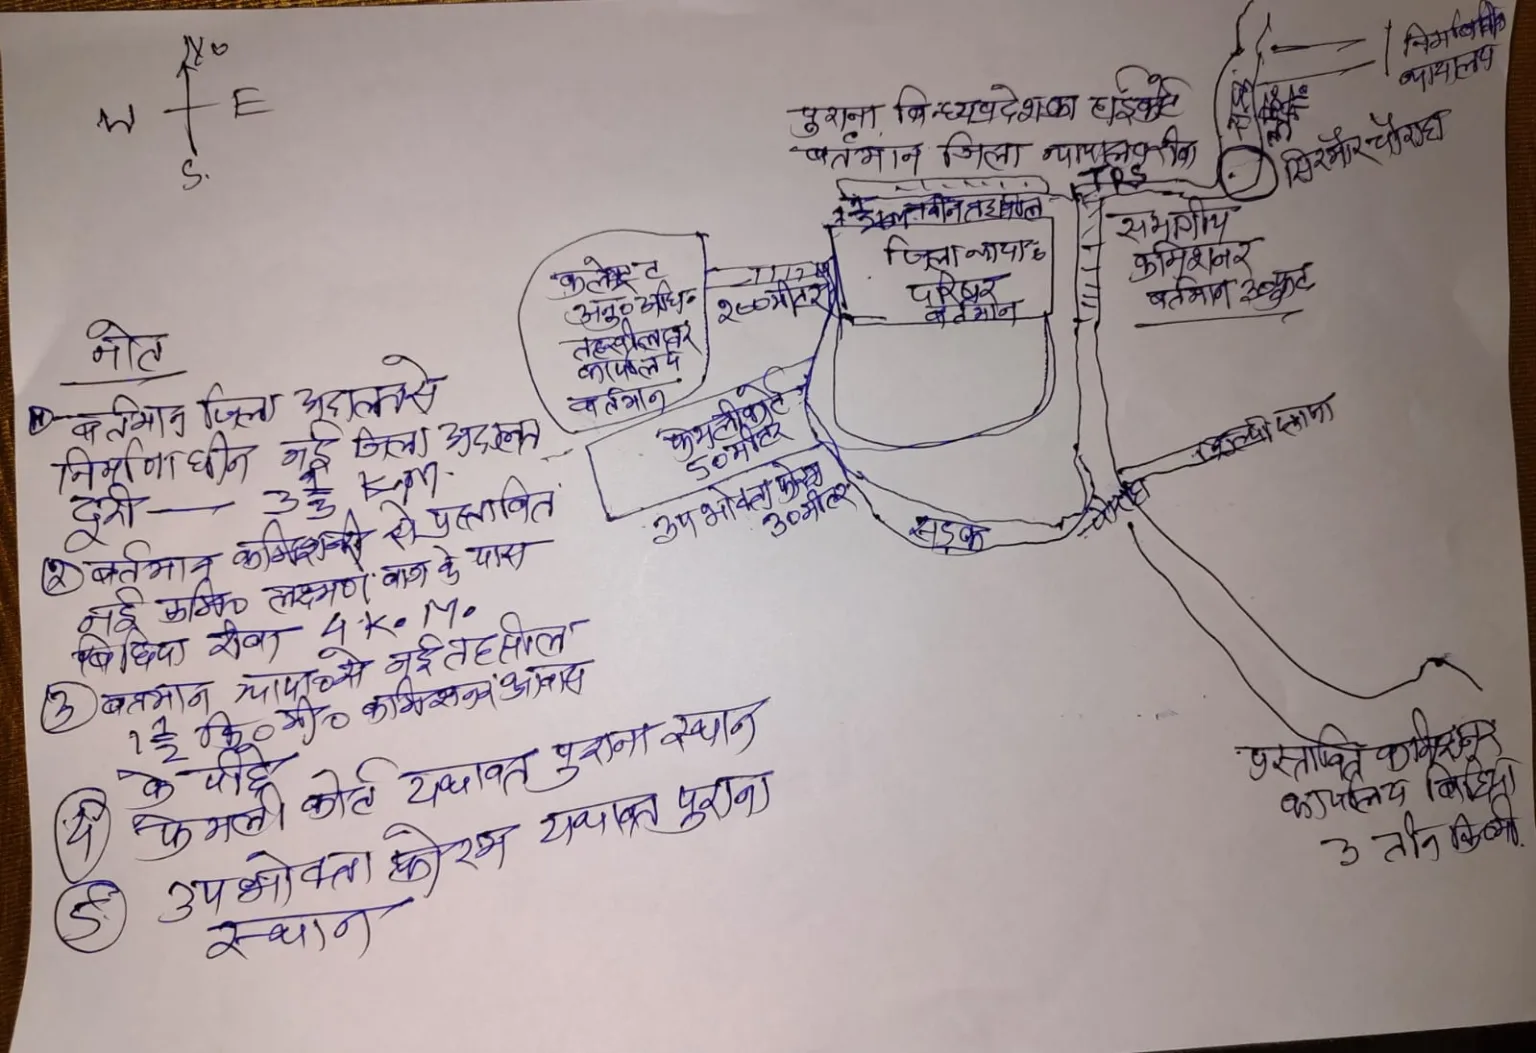 N
W E
S.
पुराना विन्ध्यप्रदेश का हाईकोर्ट
वर्तमान जिला न्यायालय रीवा
TRS
निर्माणाधीन
न्यायालय
सिरमौर चौराहा
जिला न्याया०
परिसर
वर्तमान
संभागीय
कमिश्नर
वर्तमान
कलेक्ट
अनु० अधि०
तहसीलदार
कार्यालय
वर्तमान
२००मीटर
फेमली कोर्ट
50 मीटर
उपभोक्ता फोरम
30 मीटर
सड़क
प्रस्तावित कमिश्नर
कार्यालय बिछिया
3 तीन कि०मी.
नोट
वर्तमान जिला अदालत से
निर्माणाधीन नई जिला अदालत
दूरी — 3 1/3 K.M.
② वर्तमान कमिश्नरी से प्रस्तावित
नई कमि० लक्ष्मण बाग के पास
बिछिया रीवा 4 K.M.
③ वर्तमान न्याया० से नई तहसील
1 1/2 कि०मी० कमिश्नर आवास
के पीछे
④ फेमली कोर्ट यथावत पुराना स्थान
⑤ उपभोक्ता फोरम यथावत पुराना
स्थान